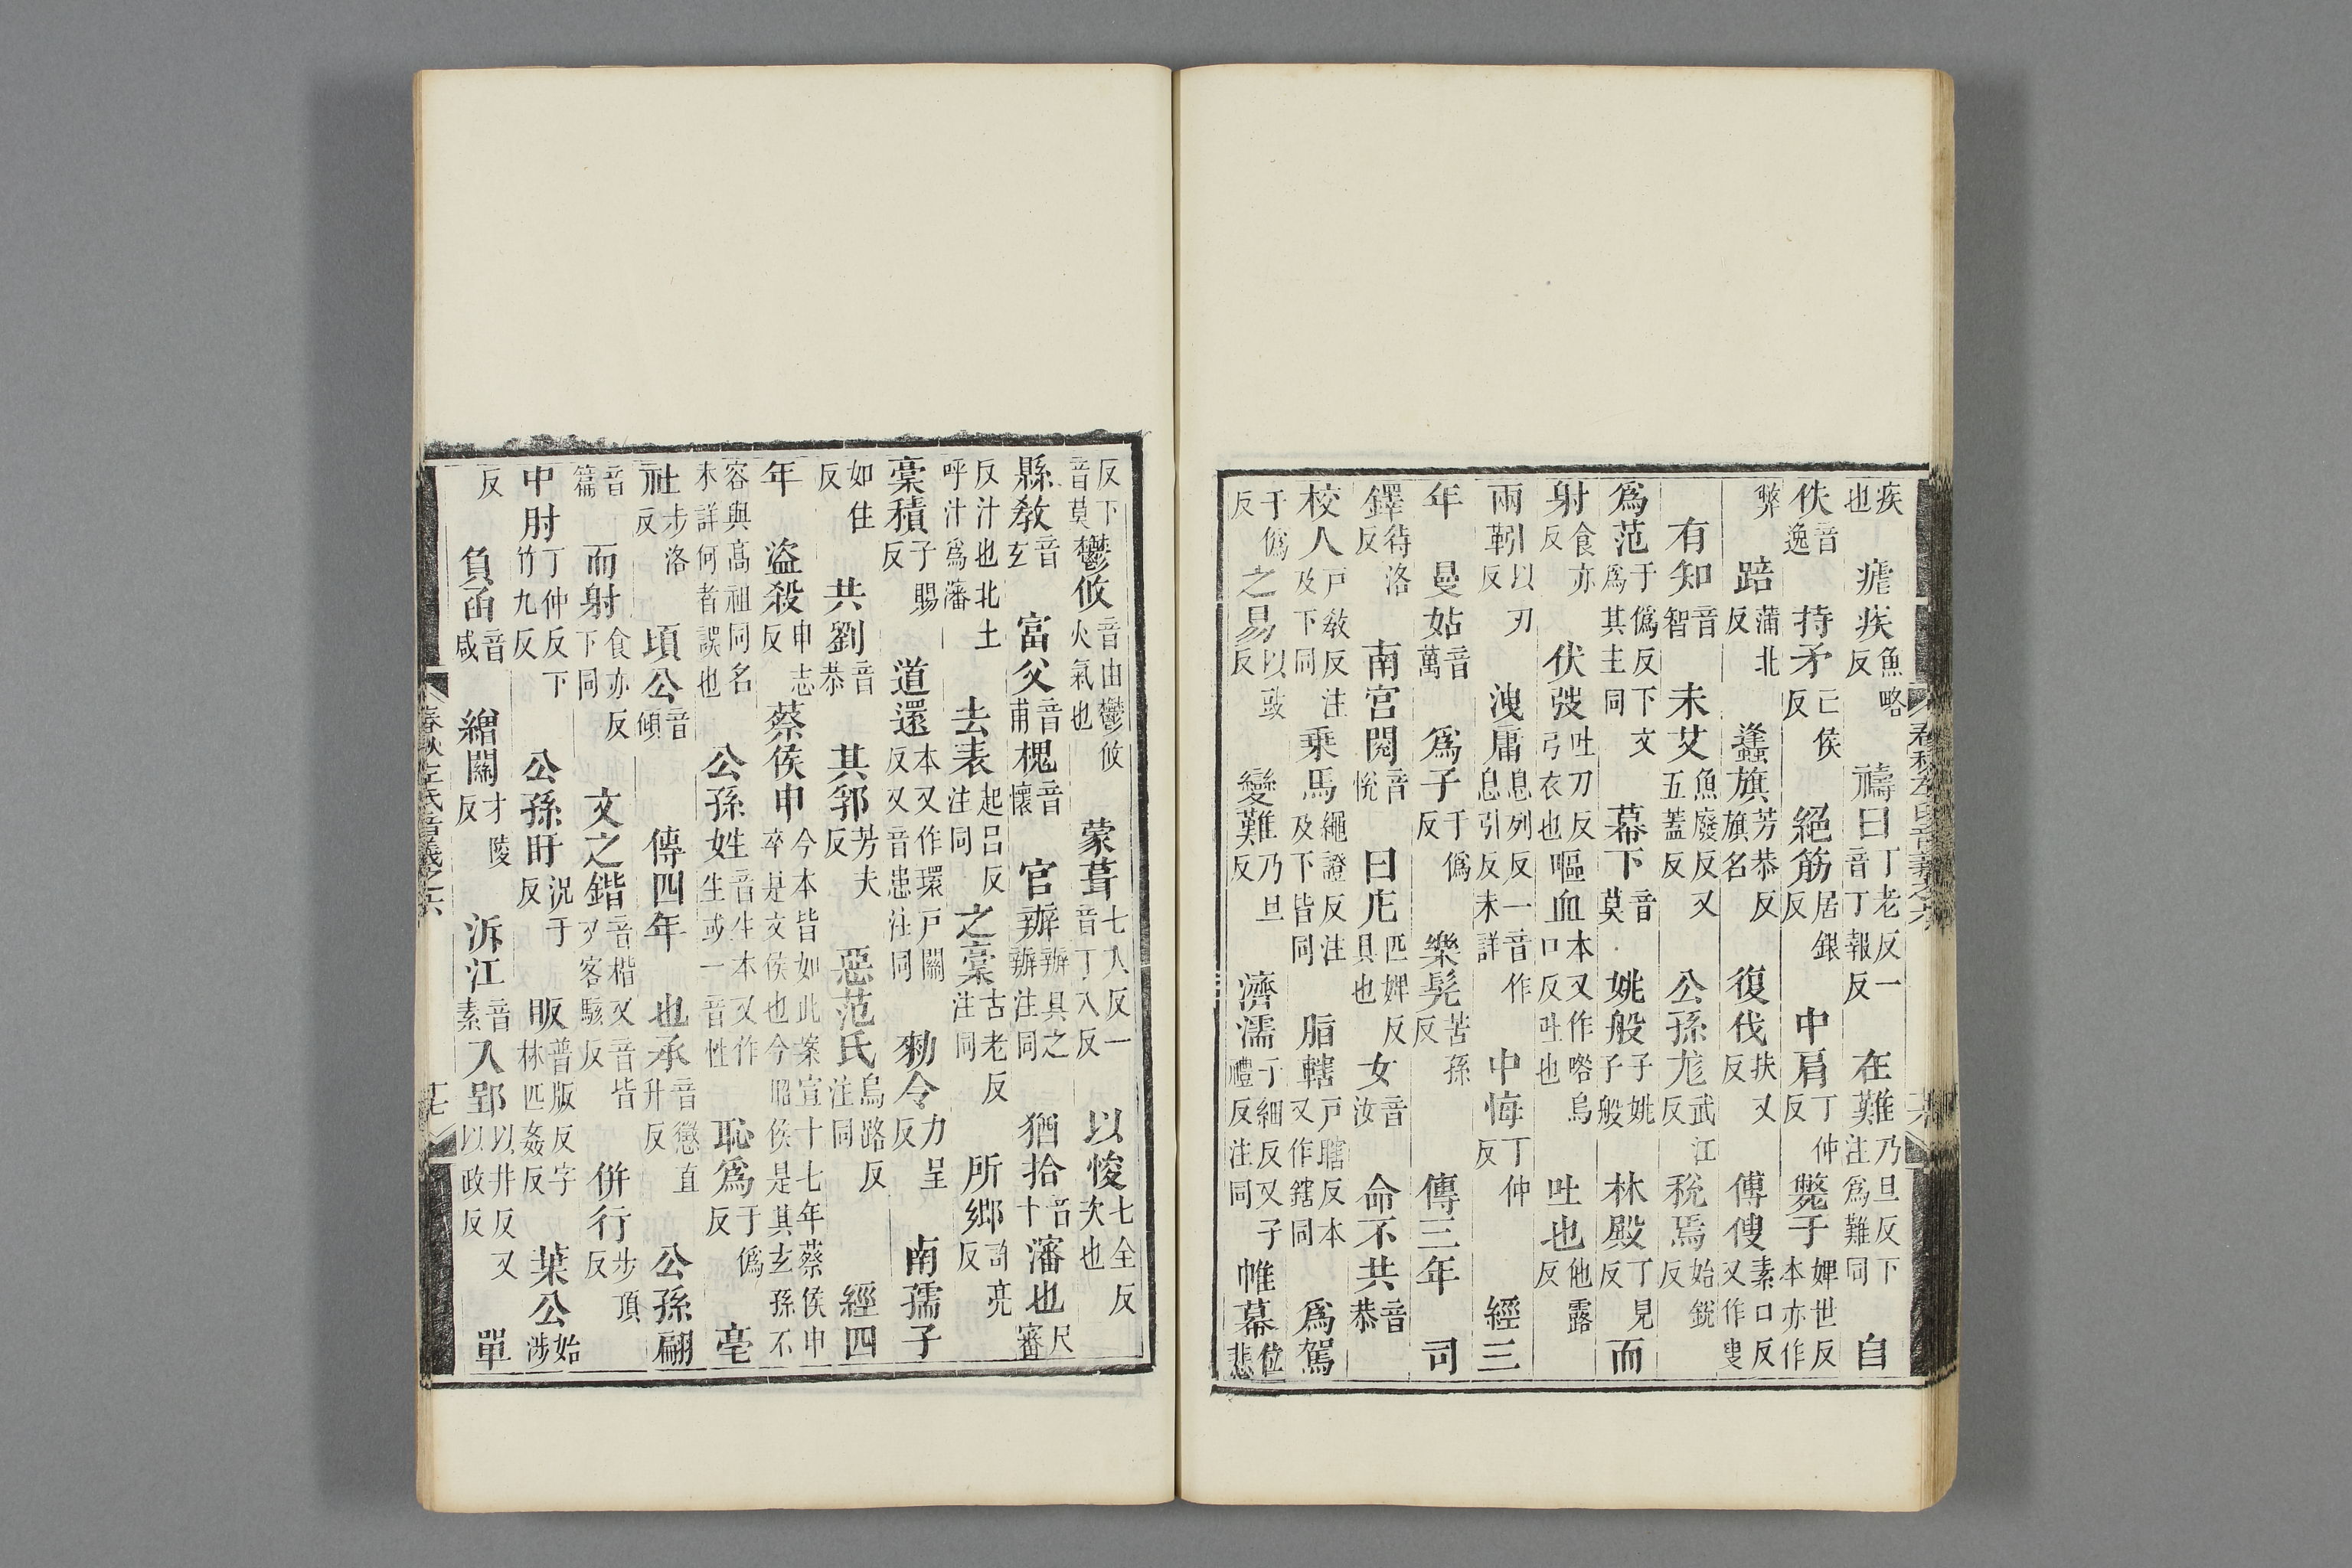 疾也 瘧疾魚略反 禱曰丁老反一音丁報反 在難乃旦反下注爲難同 自
佚音逸 持矛亡侯反 絕筋居銀反 中肩丁仲反 斃于婢世反本亦作
弊 踣蒲北反 蠭旗芳恭反旗名 復伐扶又反 傅傁素口反又作叟
有知音智 未艾魚廢反又五蓋反 公孫尨武江反 稅焉始銳反
爲范于僞反下文爲其主同 幕下音莫 姚般子姚子般 林殿丁見反 而
射食亦反 伏弢吐刀反弓衣也 嘔血本又作㗁烏口反吐也 吐也他露反
兩靷以刃反 洩庸息列反一音作息引反未詳 中悔丁仲反 經三
年 曼姑音萬 爲子于僞反 樂髡苦孫反 傳三年 司
鐸待洛反 南宮閱音悅 曰庀匹婢反具也 女音汝 命不共音恭
校人戶敎反注及下同 乘馬繩證反注及下皆同 脂轄戶瞎反本又作鎋同 爲駕
于僞反 之易以豉反 變難乃旦反 濟濡子細反又子禮反注同 帷幕位悲
反下音莫 鬱攸音由鬱攸火氣也 蒙葺七入反一音丁入反 以悛七全反次也
縣敎音玄 富父音甫 槐音懷 官辦辦具之辦注同 猶拾音十 瀋也尺審
反汁也北土呼汁爲瀋 去表起呂反注同 之稾古老反注同 所鄉許亮反
稾積子賜反 道還本又作環戶關反又音患注同 勑令力呈反 南孺子
如住反 共劉音恭 其郛芳夫反 惡范氏烏路反注同 經四
年 盜殺申志反 蔡侯申今本皆如此案宣十七年蔡侯申卒是文侯也今昭侯是其玄孫不
容與高祖同名未詳何者誤也 公孫姓音生本又作生或一音性 恥爲于僞反 亳
社步洛反 頃公音傾 傳四年 也承音懲直升反 公孫翩
音篇 而射食亦反下同 文之鍇音楷又音皆又客駭反 併行步頂反
中肘丁仲反下竹九反 公孫盱況于反 昄普版反字林匹姦反 葉公始涉
反 負函音咸 繒關才陵反 泝江音素 入郢以井反又以政反 單
春秋左氏音義之六 十七